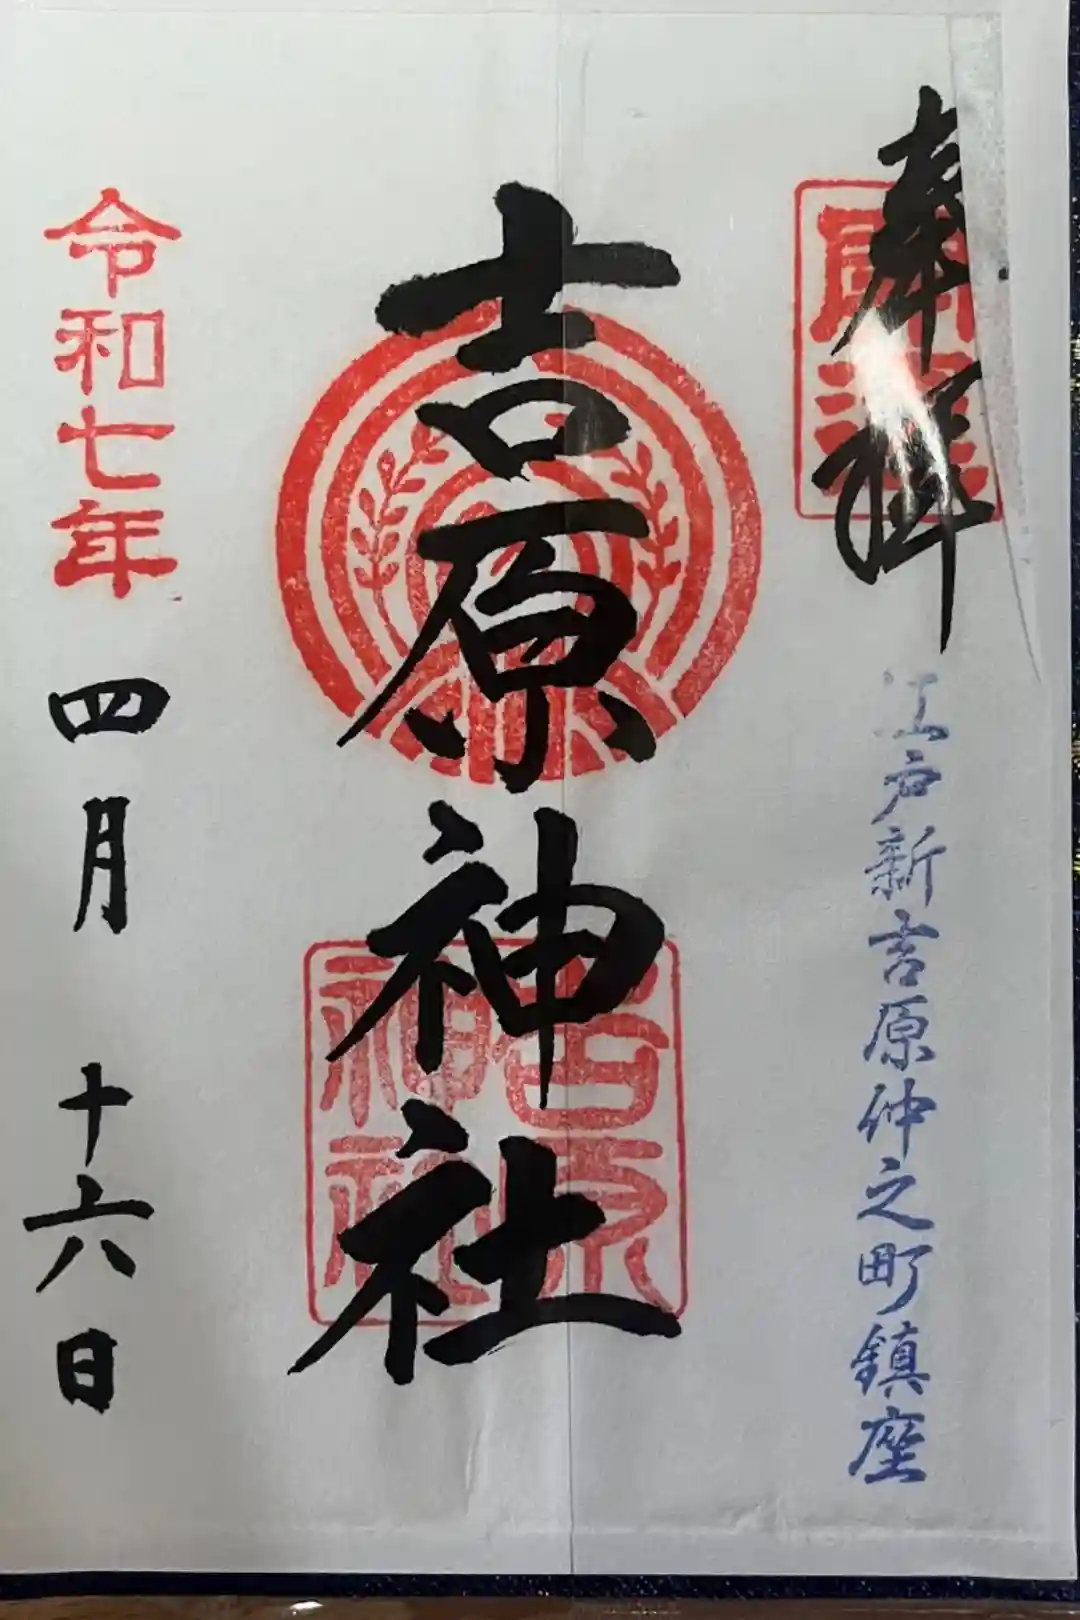 奉拝
開運
江戸新吉原仲之町鎮座
吉原神社
吉原神社
令和七年四月十六日